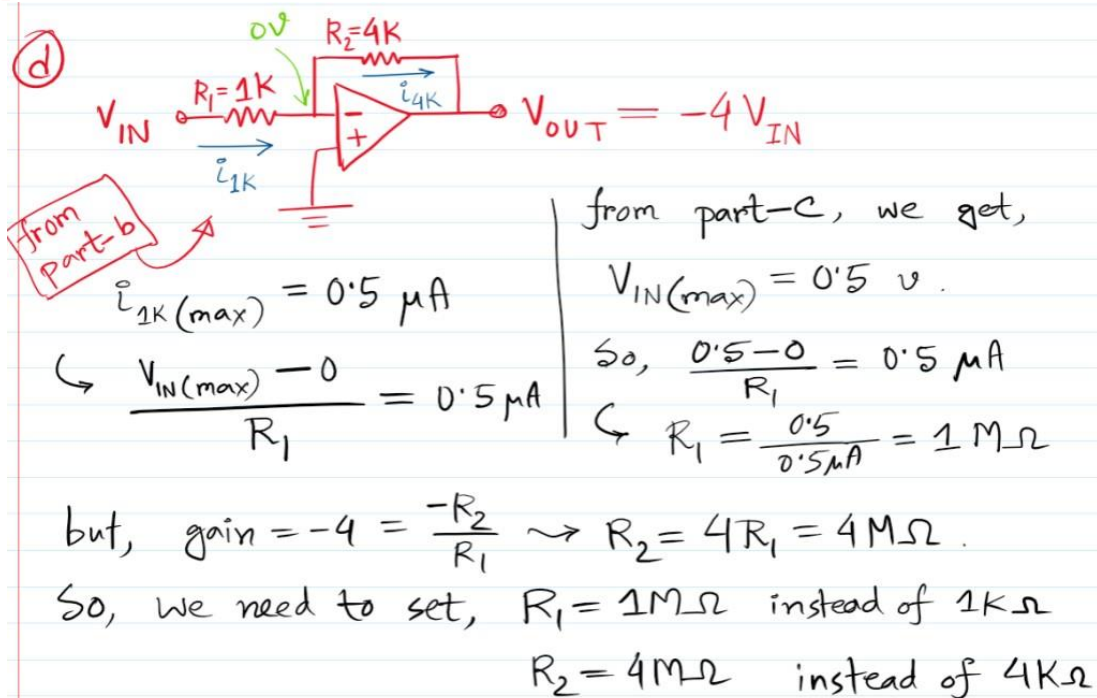 d
0V
R₂=4K
R₁=1K
i₄K
V_IN
- +
V_OUT = -4 V_IN
i₁K
from part-b
i₁K(max) = 0.5 μA
↳ (V_IN(max) - 0)/R₁ = 0.5 μA
from part-c, we get,
V_IN(max) = 0.5 v.
So, (0.5-0)/R₁ = 0.5 μA
↳ R₁ = 0.5/0.5μA = 1 MΩ
but, gain = -4 = -R₂/R₁ ⇝ R₂ = 4R₁ = 4MΩ.
So, we need to set, R₁ = 1MΩ instead of 1KΩ
R₂ = 4MΩ instead of 4KΩ